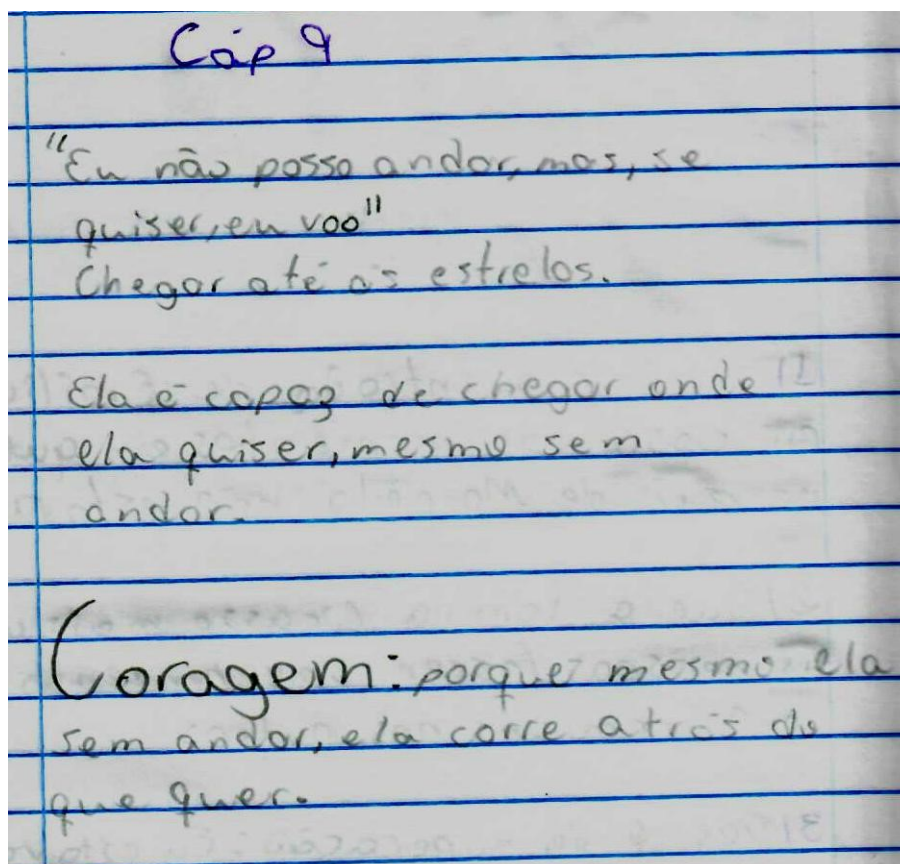 Cáp 9
"Eu não posso andar, mas, se
quiser, eu voo"
Chegar até as estrelas.
Ela é capaz de chegar onde
ela quiser, mesmo sem
andar.
Coragem: porque mesmo ela
sem andar, ela corre atrás do
que quer.